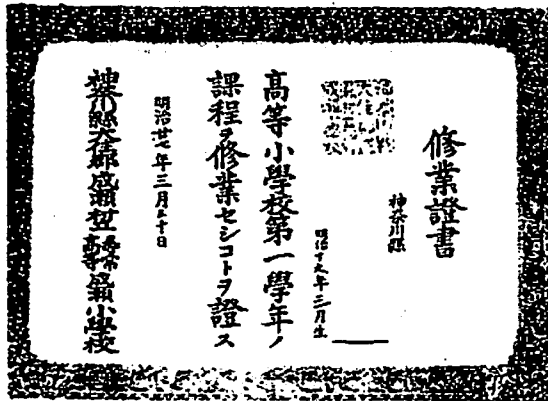 修業證書
神奈川縣
明治十九年三月生
高等小學校第一學年ノ
課程ヲ修業セシコトヲ證ス
明治廿七年三月 十日
神奈川縣 郡 瀬村立尋常高等 小學校